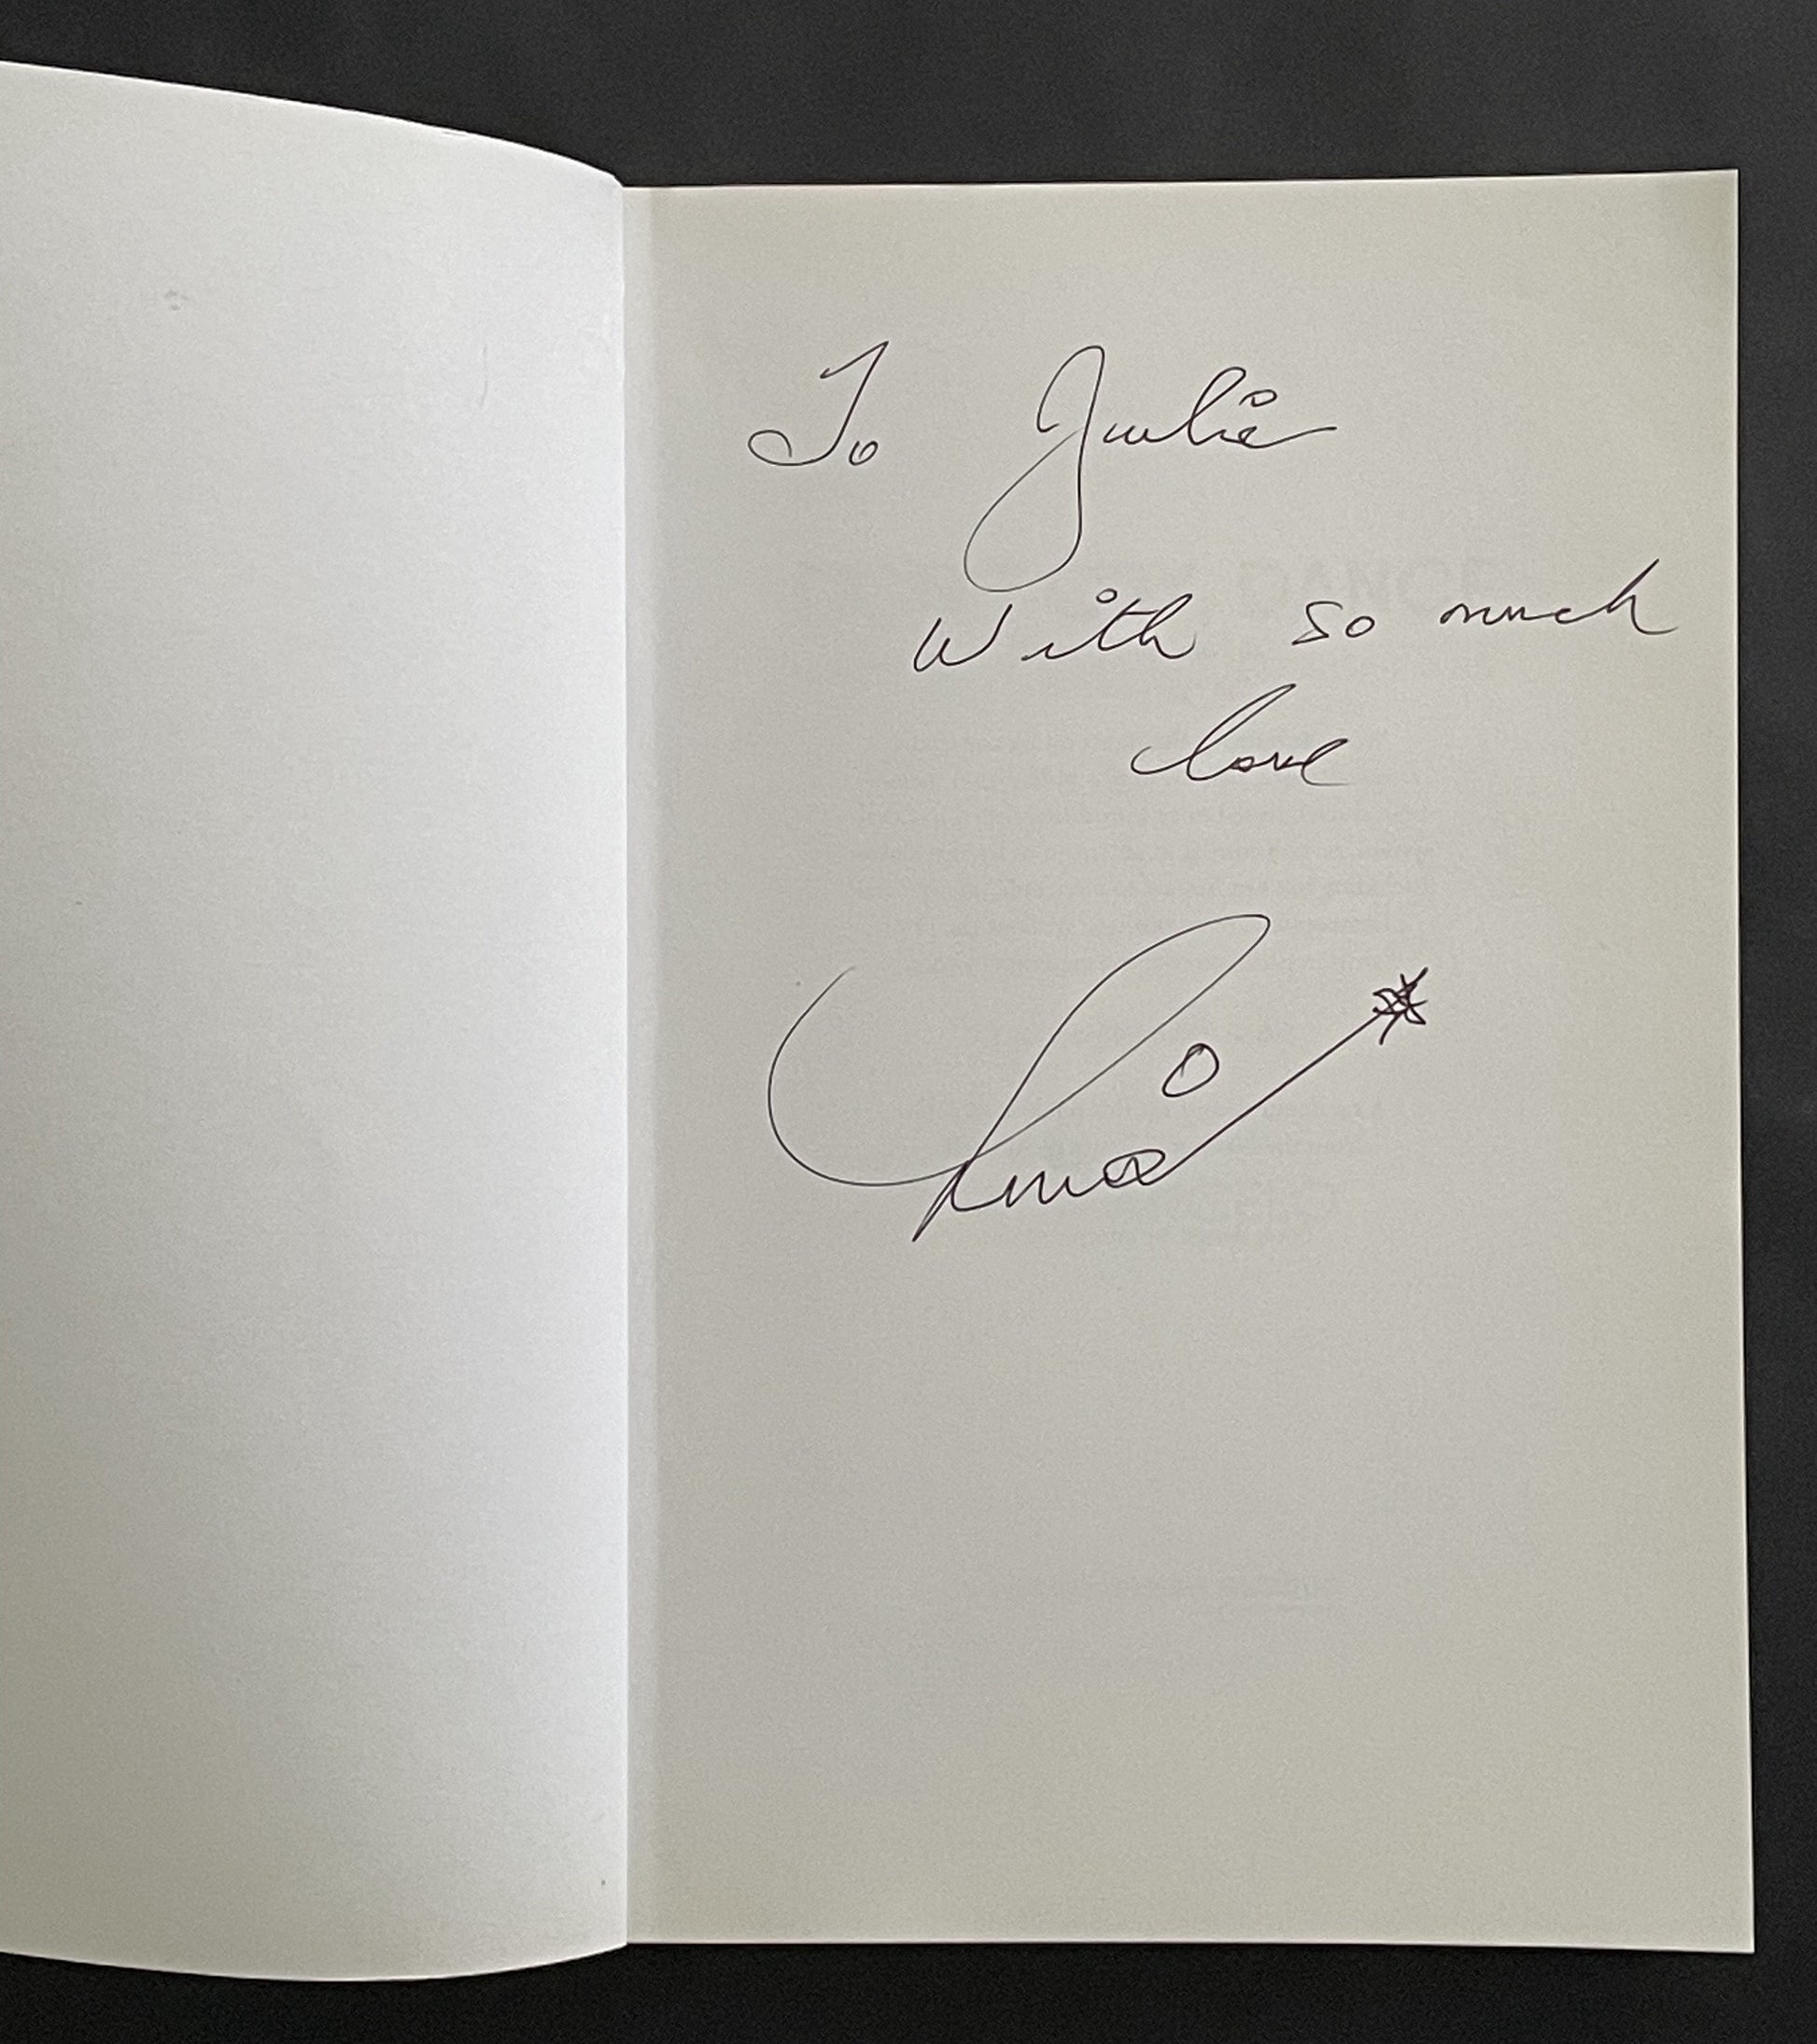 To Julie
With so much
love